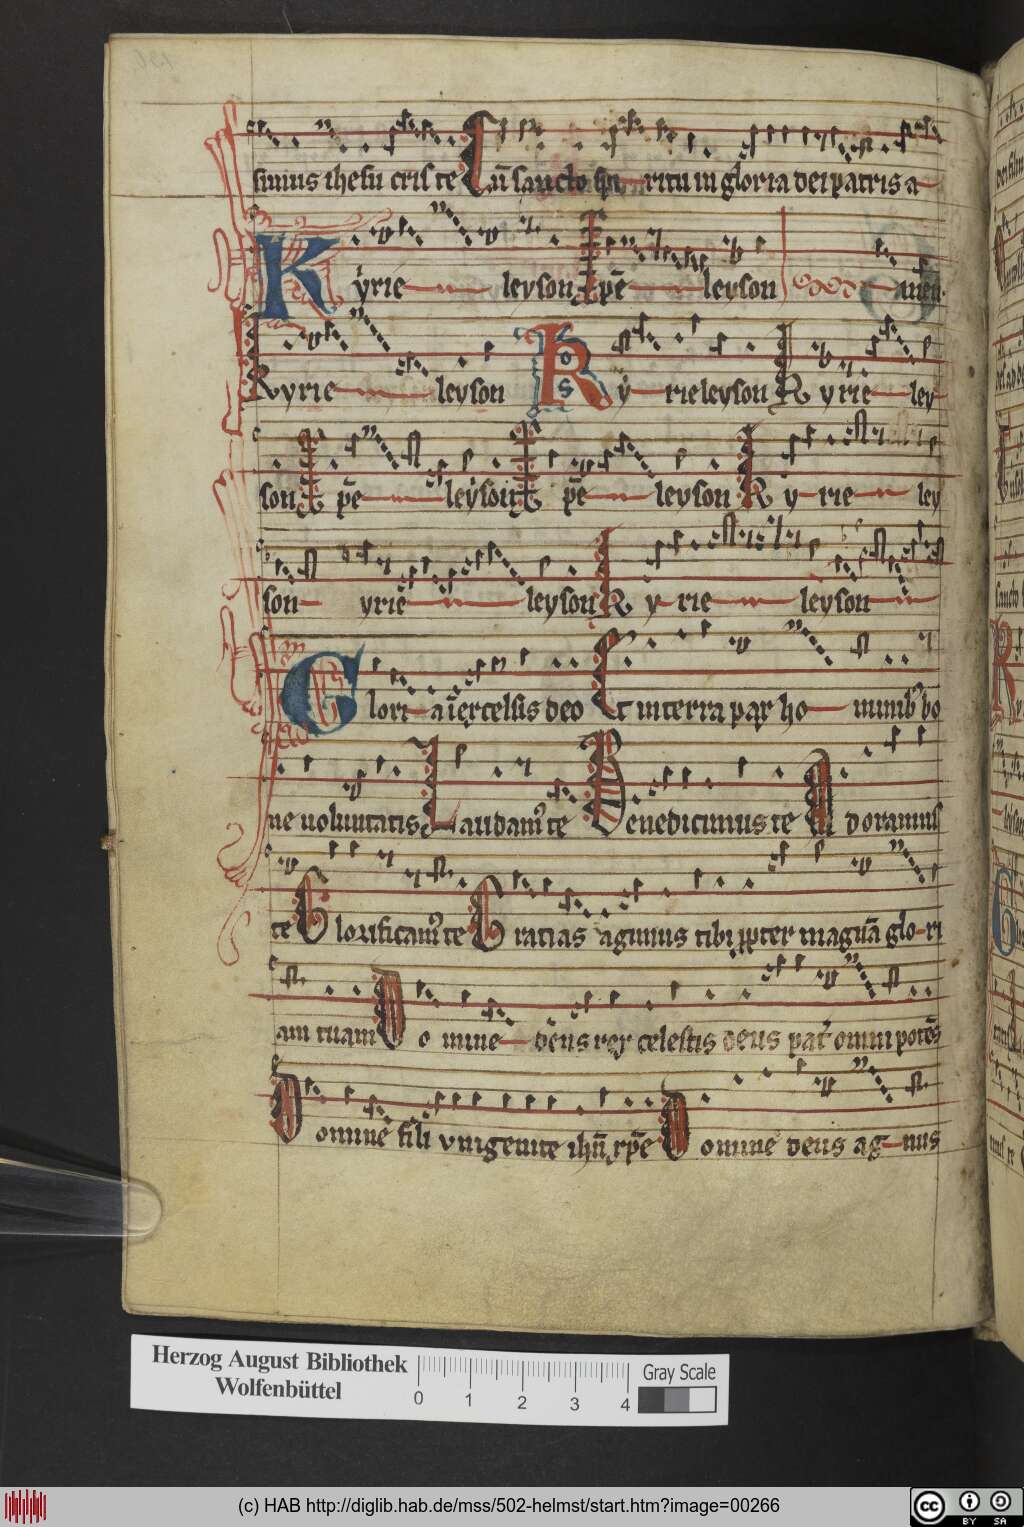 simus ihesu criste Cū sancto spiritu in gloria dei patris a
Kyrie leyson Xpē leyson amen.
Kyrie leyson Kyrieleyson Kyrie ley
son Xpē leyson Xpē leyson Kyrie ley
son yrie leyson Kyrie leyson
Gloria ī excelsis deo Et in terra pax hominib' bo
ne voluntatis Laudam' te Benedicimus te Adoramus
te Glorificam' te Gratias agimus tibi ꝓpter magnā glori
am tuam Domine deus rex celestis deus pat' omnipotēs
Domine fili vnigenite ihū xpē Domine deus agnus
Herzog August Bibliothek
Wolfenbüttel
0 1 2 3 4
Gray Scale
(c) HAB http://diglib.hab.de/mss/502-helmst/start.htm?image=00266
cc BY SA